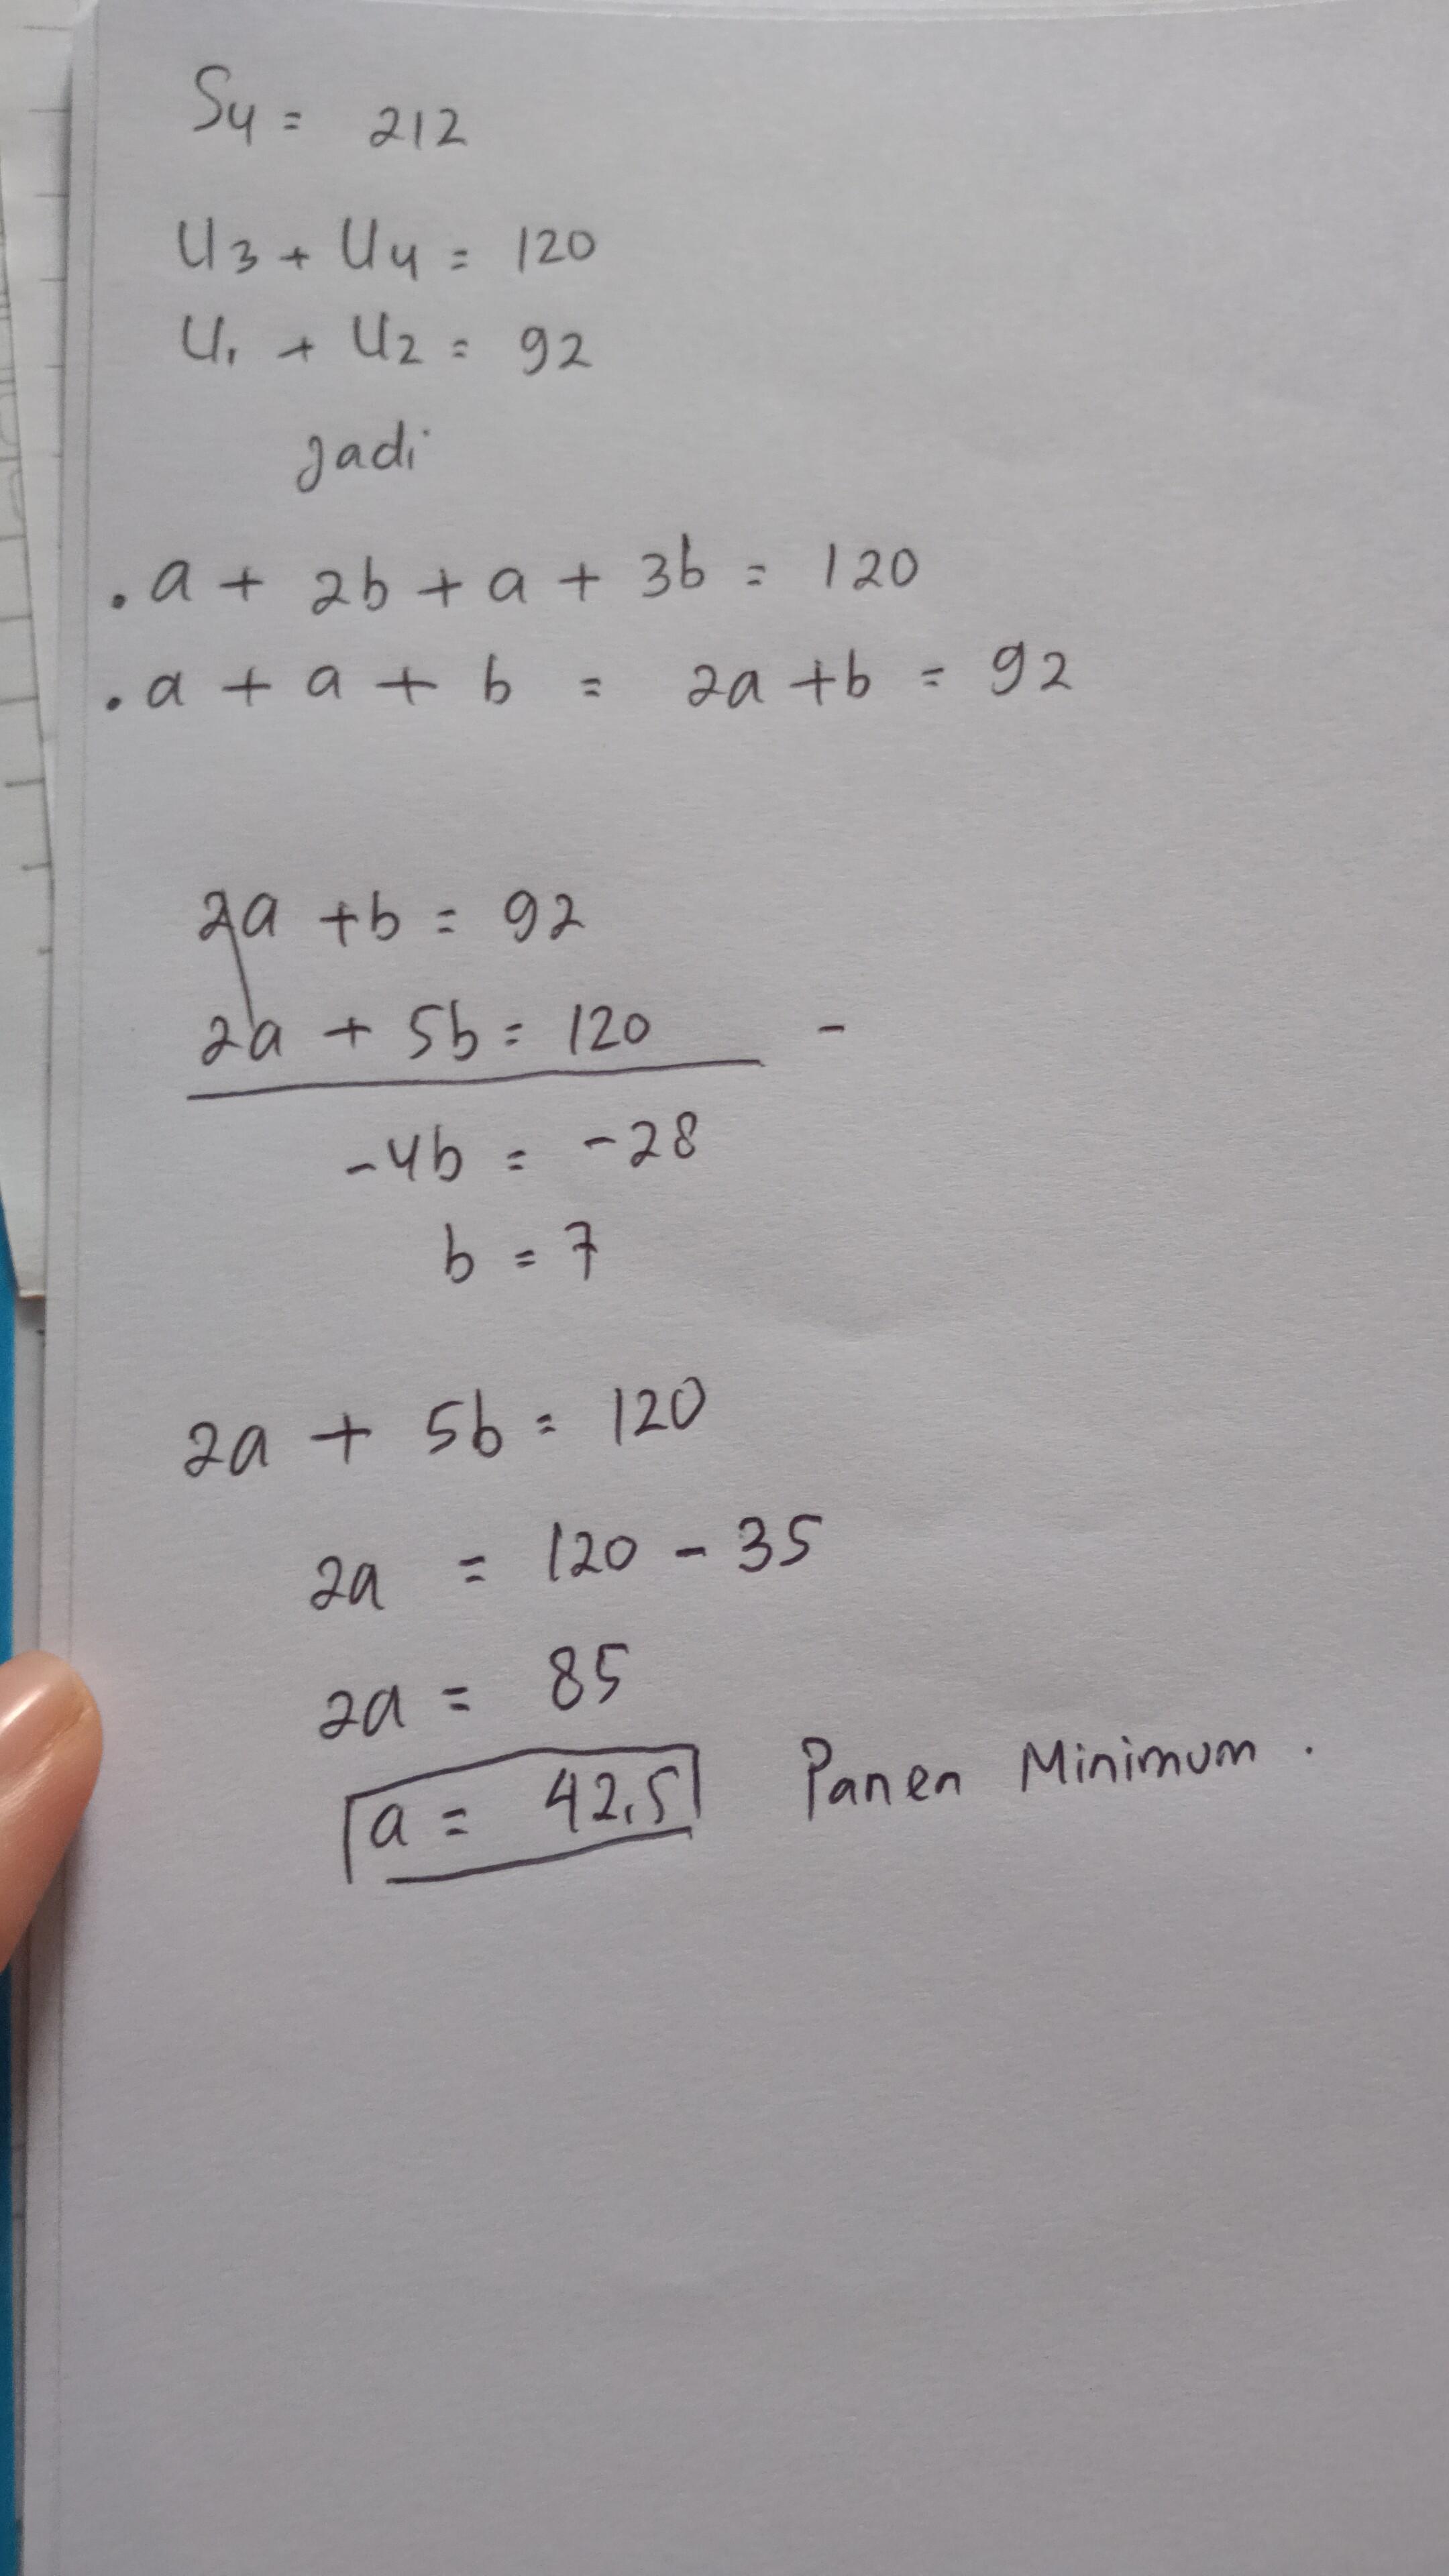 S4 = 212
U3 + U4 = 120
U1 + U2 = 92
jadi
. a + 2b + a + 3b = 120
. a + a + b = 2a + b = 92
2a + b = 92
2a + 5b = 120 -
-4b = -28
b = 7
2a + 5b = 120
2a = 120 - 35
2a = 85
a = 42,5 Panen Minimum.